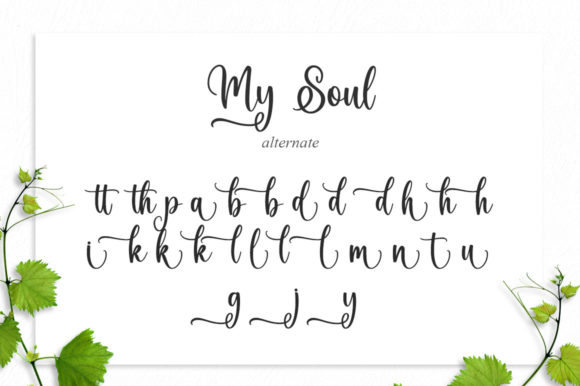 My Soul
alternate
tt th p a b b d d d h h h
i k k k l l l l m n t u
g j y